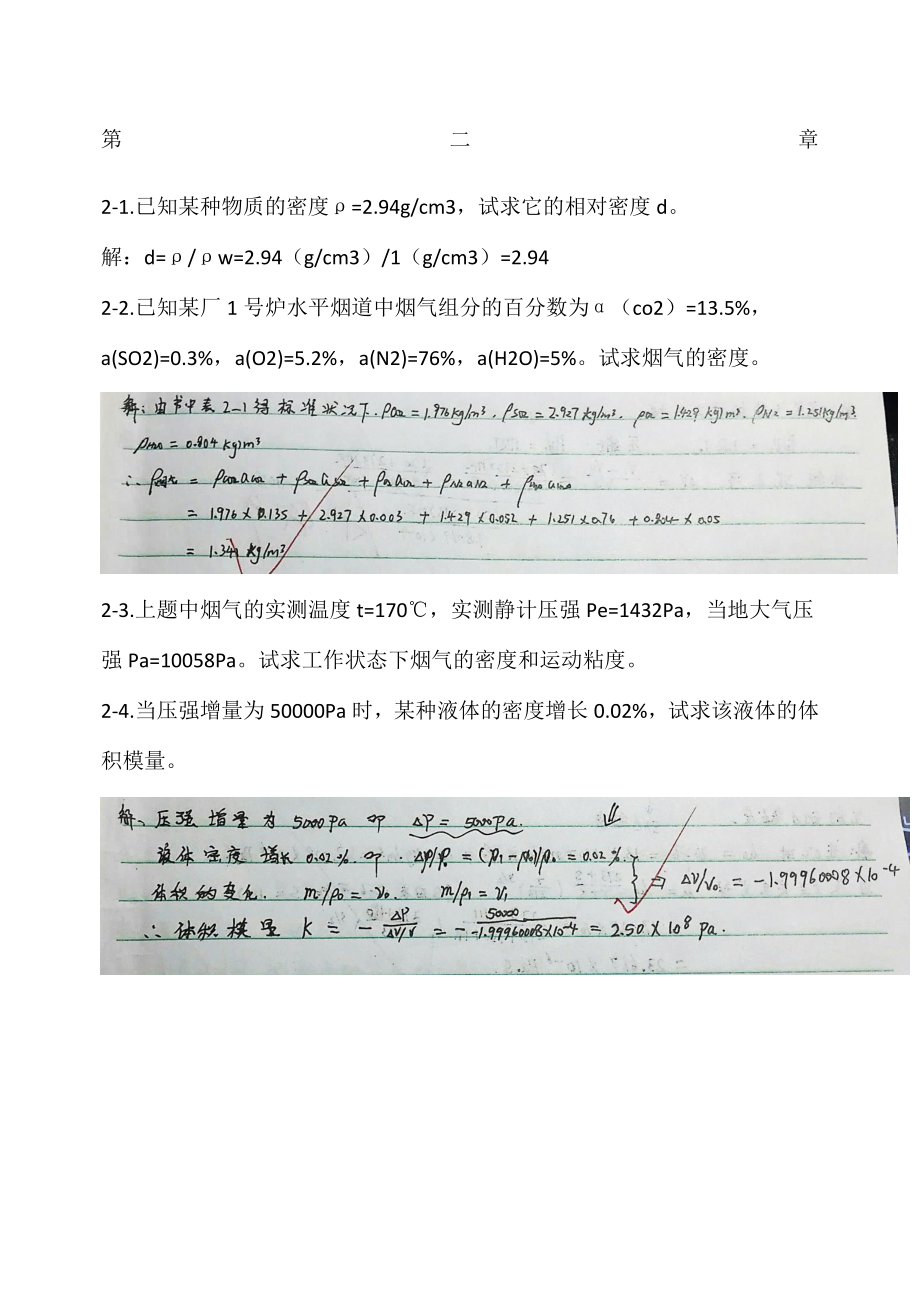 第 二 章
2-1.已知某种物质的密度ρ=2.94g/cm3，试求它的相对密度 d。
解：d=ρ/ρw=2.94（g/cm3）/1（g/cm3）=2.94
2-2.已知某厂 1 号炉水平烟道中烟气组分的百分数为α（co2）=13.5%，
a(SO2)=0.3%，a(O2)=5.2%，a(N2)=76%，a(H2O)=5%。试求烟气的密度。
解：由书中表2-1得标准状况下. ρCO2=1.976kg/m³, ρSO2=2.927kg/m³, ρO2=1.429kg/m³. ρN2=1.251kg/m³.
ρH2O=0.804kg/m³
∴ρ烟气=ρCO2αCO2+ρSO2αSO2+ρO2αO2+ρN2αN2+ρH2OαH2O
=1.976×0.135+2.927×0.003+1.429×0.052+1.251×0.76+0.804×0.05
=1.341kg/m³
2-3.上题中烟气的实测温度 t=170℃，实测静计压强 Pe=1432Pa，当地大气压
强 Pa=10058Pa。试求工作状态下烟气的密度和运动粘度。
2-4.当压强增量为 50000Pa 时，某种液体的密度增长 0.02%，试求该液体的体
积模量。
解、压强增量为 5000Pa 即 ΔP=5000Pa.
液体密度增长 0.02%. 即. Δρ/ρ0=(ρ1-ρ0)/ρ0=0.02%.
体积的变化. m/ρ0=V0. m/ρ1=V1 } ⇒ ΔV/V0=-1.99960008×10⁻⁴
∴体积模量 K=-ΔP/(ΔV/V)=-50000/(-1.99960008×10⁻⁴)=2.50×10⁸Pa.